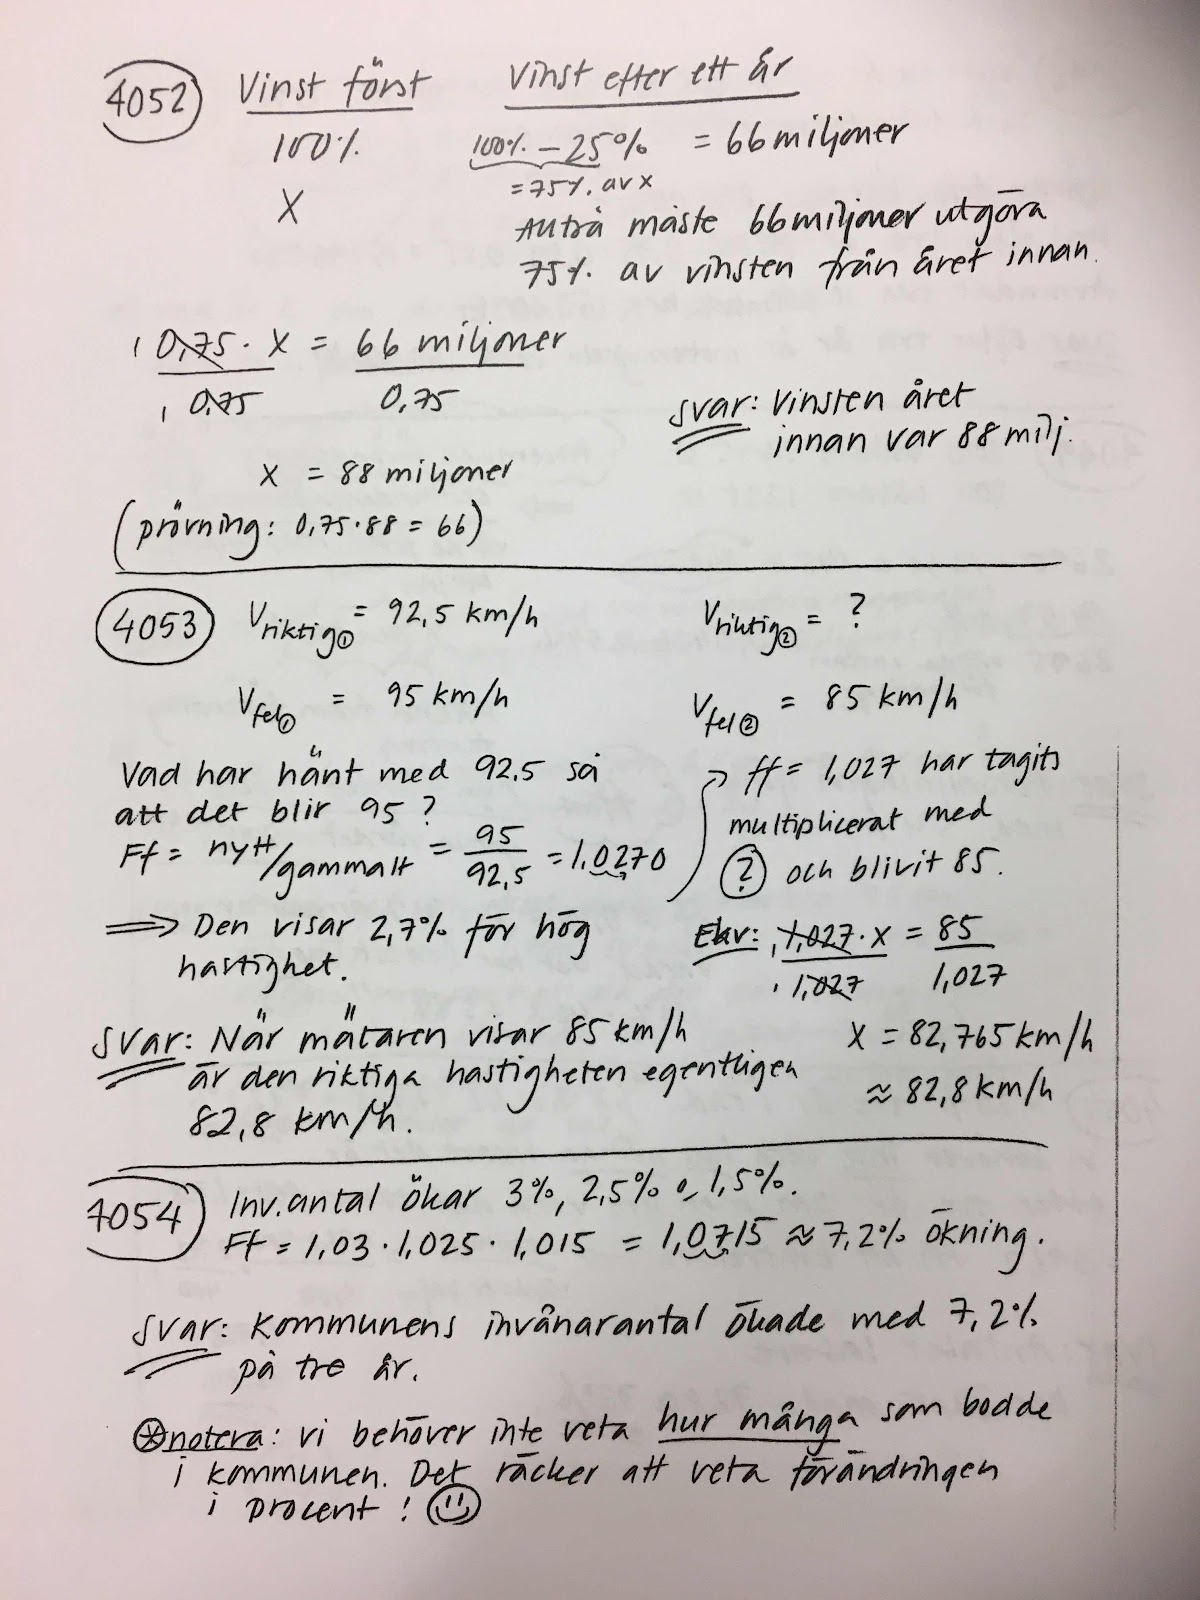 4052 Vinst först Vinst efter ett år
100% 100% − 25% = 66 miljoner
= 75% av x
X
Alltså måste 66 miljoner utgöra
75% av vinsten från året innan.
1 0,75 · X = 66 miljoner
1 0,75 0,75
svar: Vinsten året
innan var 88 milj.
X = 88 miljoner
(prövning: 0,75·88 = 66)
4053 Vriktig① = 92,5 km/h Vriktig② = ?
Vfel① = 95 km/h Vfel② = 85 km/h
Vad har hänt med 92,5 så
att det blir 95?
Ff = nytt/gammalt = 95/92,5 = 1,0270
⟹ Den visar 2,7% för hög
hastighet.
→ ff = 1,027 har tagits
multiplicerat med
? och blivit 85.
Ekv: 1,027 · x = 85
1,027 1,027
X = 82,765 km/h
≈ 82,8 km/h
svar: När mätaren visar 85 km/h
är den riktiga hastigheten egentligen
82,8 km/h.
4054 Inv.antal ökar 3%, 2,5% o 1,5%.
Ff = 1,03 · 1,025 · 1,015 = 1,0715 ≈ 7,2% ökning.
svar: kommunens invånarantal ökade med 7,2%
på tre år.
⊛notera: vi behöver inte veta hur många som bodde
i kommunen. Det räcker att veta förändringen
i procent! ☺